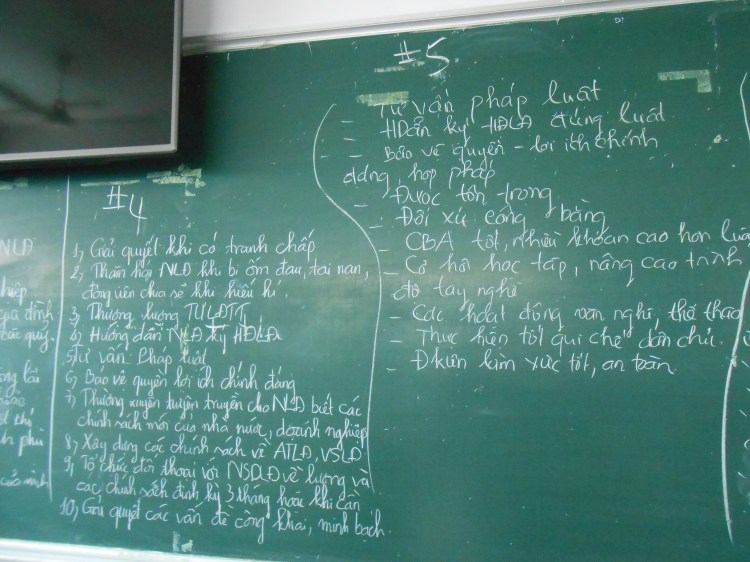 NLĐ
#4
1, Giải quyết khi có tranh chấp
2, Thăm hỏi NLĐ khi bị ốm đau, tai nạn,
động viên chia sẻ khi hiếu hỉ.
3, Thương lượng TƯLĐTT
4, Hướng dẫn NLĐ ký HĐLĐ
5, Tư vấn Pháp luật
6, Bảo vệ quyền lợi ích chính đáng
7, Thường xuyên tuyên truyền cho NLĐ biết các
chính sách mới của nhà nước, doanh nghiệp
8, Xây dựng các chính sách về ATLĐ, VSLĐ
9, Tổ chức đối thoại với NSDLĐ về lương và
các chính sách định kỳ 3 tháng hoặc khi cần
10, Giải quyết các vấn đề công khai, minh bạch.
#5
- Tư vấn pháp luật
- HDẫn ký HĐLĐ đúng luật
- Bảo vệ quyền - lợi ích chính
đáng, hợp pháp
- Được tôn trọng
- Đối xử công bằng
- CBA tốt, nhiều khoản cao hơn luật
- Cơ hội học tập, nâng cao trình
độ tay nghề
- Các hoạt động văn nghệ, thể thao
- Thực hiện tốt qui chế dân chủ.
- Đkiện làm việc tốt, an toàn.